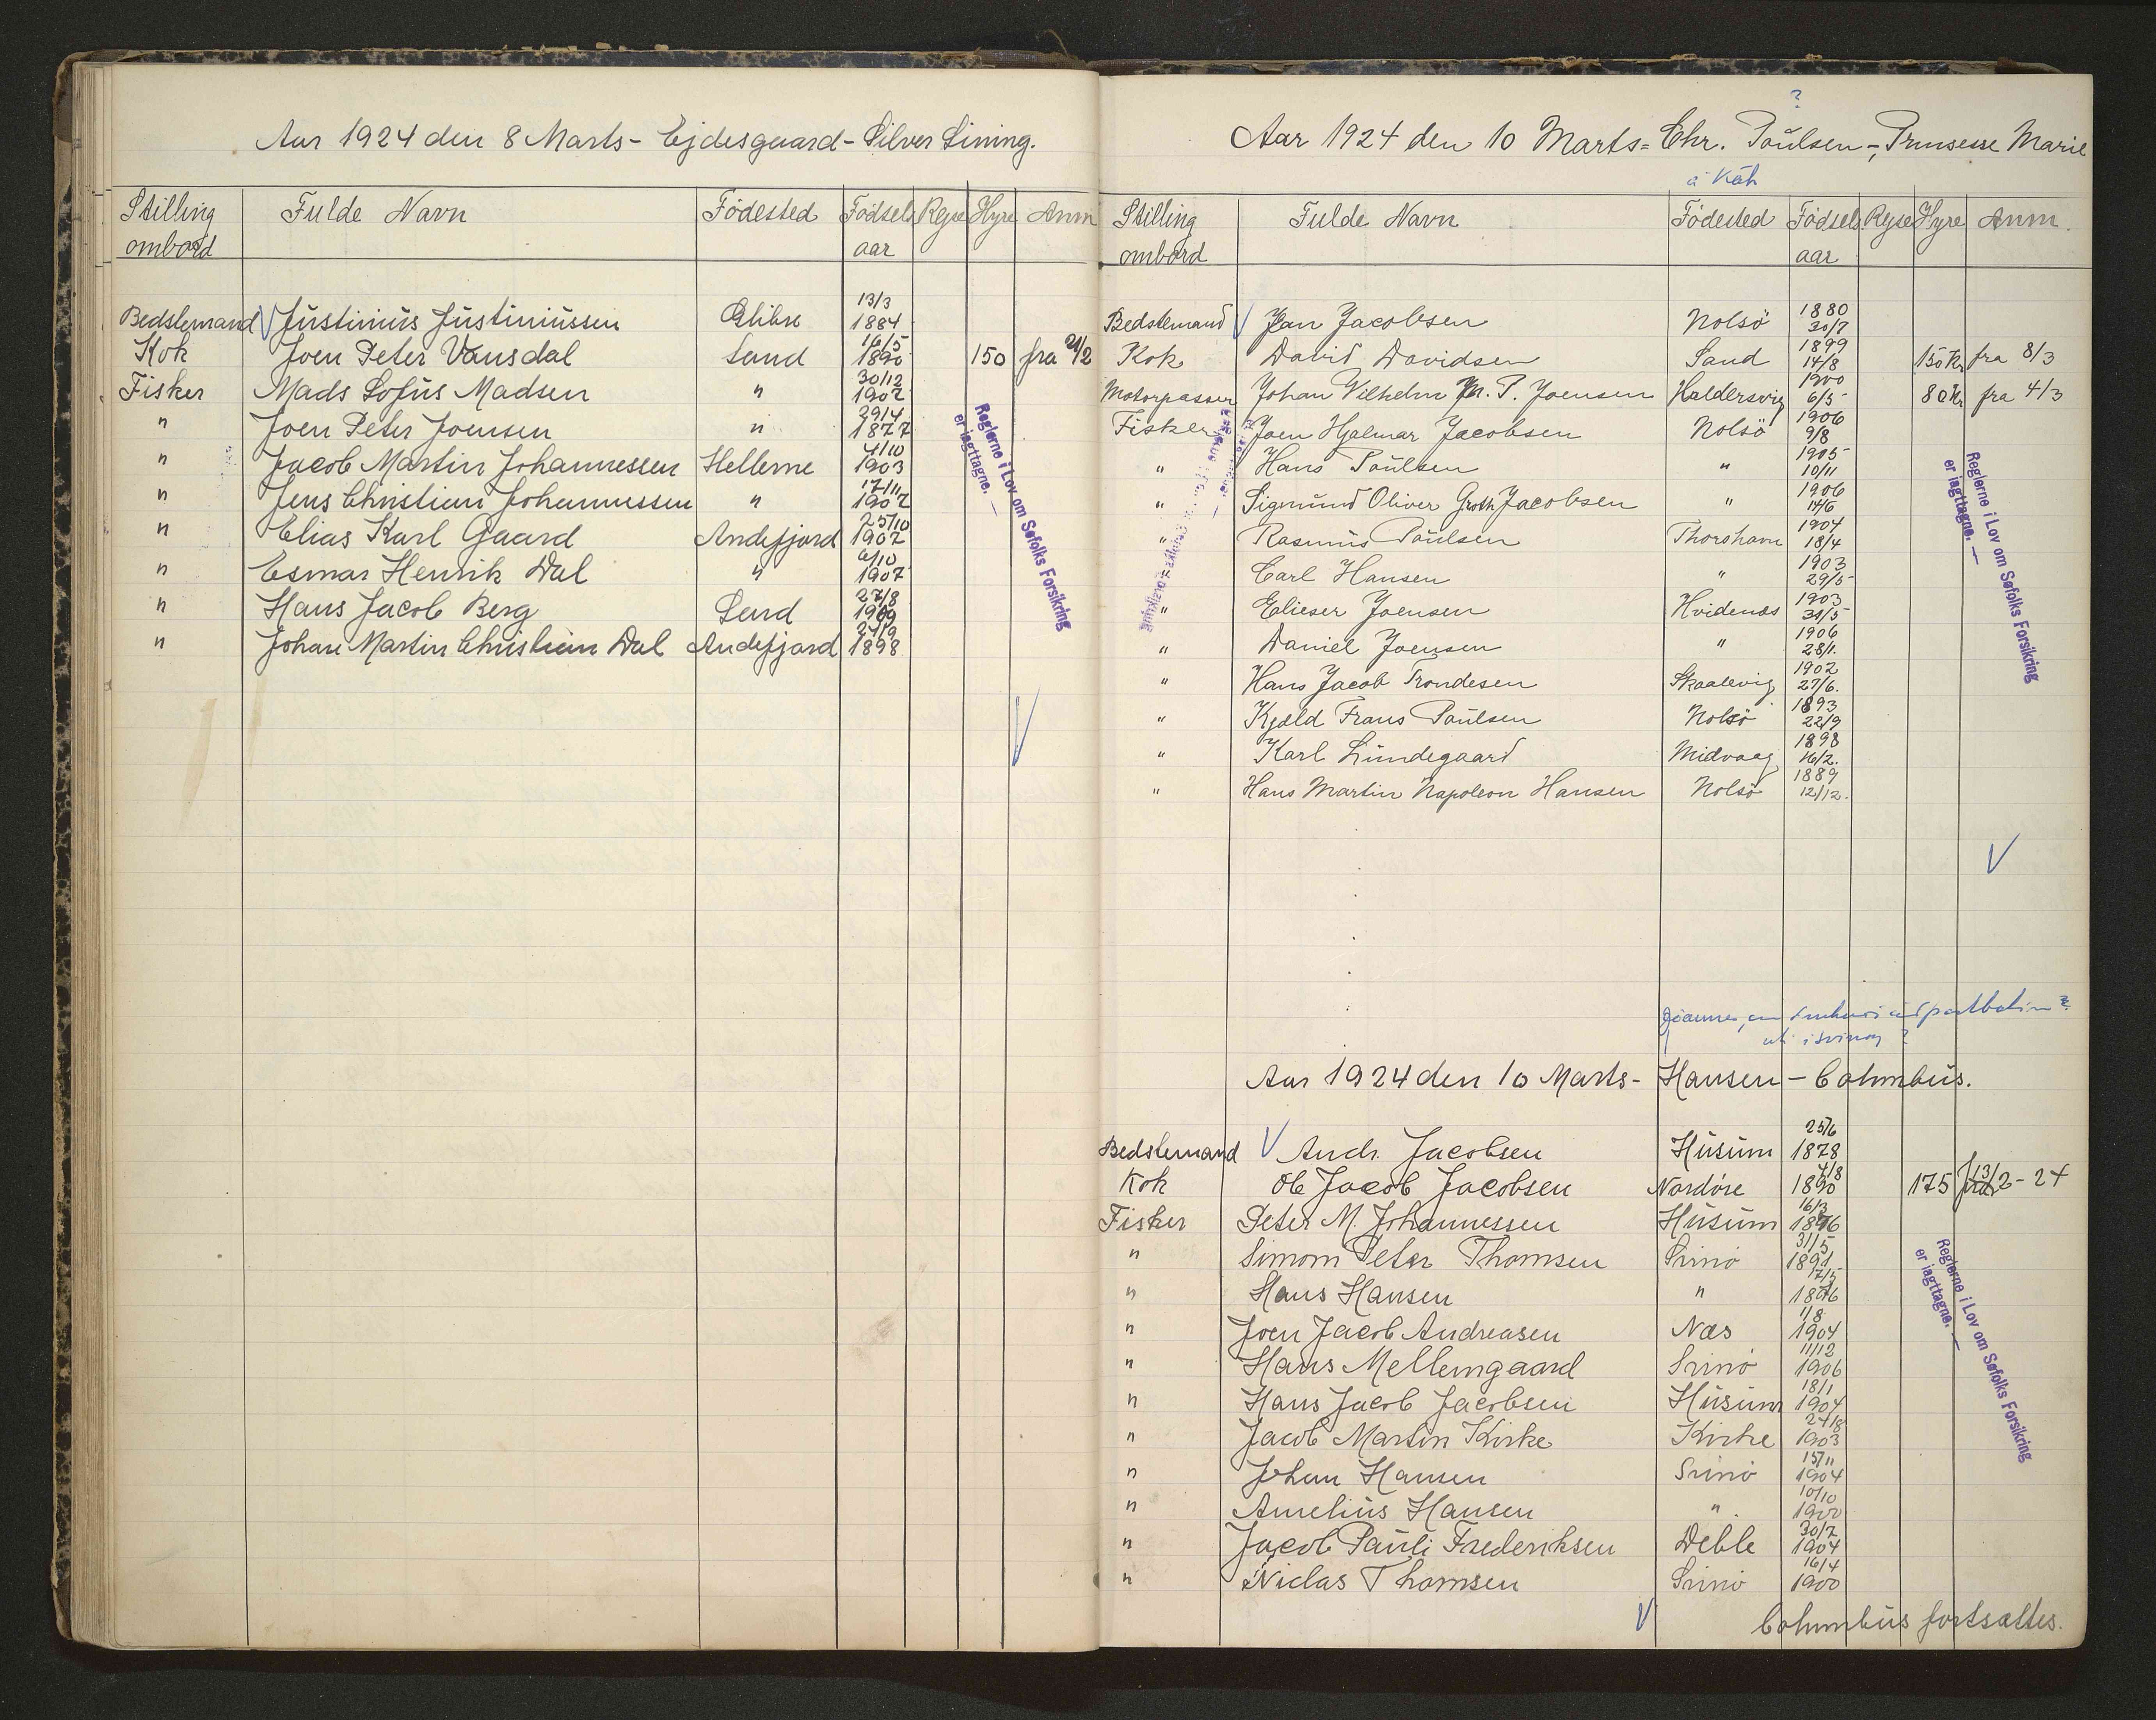 Aar 1924 den 8 Marts - Ejdesgaard - Silver Lining.
Stilling ombord Fulde Navn Fødested Fødsels aar Rejse Hyre Anm
Bedstemand Justinius Justiniussen Glibre 13/3 1884
Kok Joen Peter Vansdal Sand 16/5 1890 150 fra 21/2
Fisker Mads Sofus Madsen " 30/12 1902
" Joen Peter Joensen " 29/4 1877
" Jacob Martin Johannessen Hellerne 4/10 1903
" Jens Christian Johannessen " 17/11 1907
" Elias Karl Gaard Andefjord 25/10 1907
" Esmar Henrik Dal " 6/10 1907
" Hans Jacob Berg Sand 27/8
" Johan Martin Christian Dal Andefjord 24/9 1898
Reglerne i Lov om Søfolks Forsikring
er iagttagne. —
?
Aar 1924 den 10 Marts = Chr. Poulsen -, Prinsesse Marie
á Káh
Stilling ombord Fulde Navn Fødested Fødsels aar Rejse Hyre Anm.
Bedstemand Jan Jacobsen Nolsö 1880 30/7
Kok David Davidsen Sand 1899 14/8 150 Kr fra 8/3
Motorpasser Johan Vilhelm M. P. Joensen Haldersvig 1900 6/5 80 Kr fra 4/3
Fisker Joen Hjalmar Jacobsen Nolsö 1906 9/8
" Hans Poulsen " 1905 10/11
" Sigmund Oliver Groth Jacobsen " 1906 14/6
" Rasmus Poulsen Thorshavn 1904 18/4
" Carl Hansen " 1903 29/5
" Elieser Joensen Hvidenæs 1903 31/5
" Daniel Joensen " 1906 28/1.
" Hans Jacob Trondesen Skaalevig 1902 27/6.
" Kjæld Frans Poulsen Nolsö 1893 22/9
" Karl Lundegaard Midvaag 1898 16/2.
" Hans Martin Napoleon Hansen Nolsö 1889 12/12.
Reglerne i Lov om Søfolks Forsikring
er iagttagne. —
Aar 1924 den 10 Marts - Hansen - Columbus.
Bedstemand Andr. Jacobsen Husum 25/6 1878
Kok Ole Jacob Jacobsen Nordöre 4/8 1890 175 fra 13/2 - 24
Fisker Peter M. Johannessen Husum 16/3
" Simom Peter Thomsen Svinö 31/5 1891
" Hans Hansen " 17/5
" Joen Jacob Andreasen Næs 1/8 1904
" Hans Mellemgaard Svinö 11/12 1906
" Hans Jacob Jacobsen Husum 18/1 1904
" Jacob Martin Kirke Kirke 24/8 1903
" Johan Hansen Svinö 15/11 1904
" Amelius Hansen " 10/10 1900
" Jacob Pauli Frederiksen Deble 30/7 1904
" Niclas Thomsen Svinö 16/4 1900
Reglerne i Lov om Søfolks Forsikring
er iagttagne. —
Columbus fortsættes.